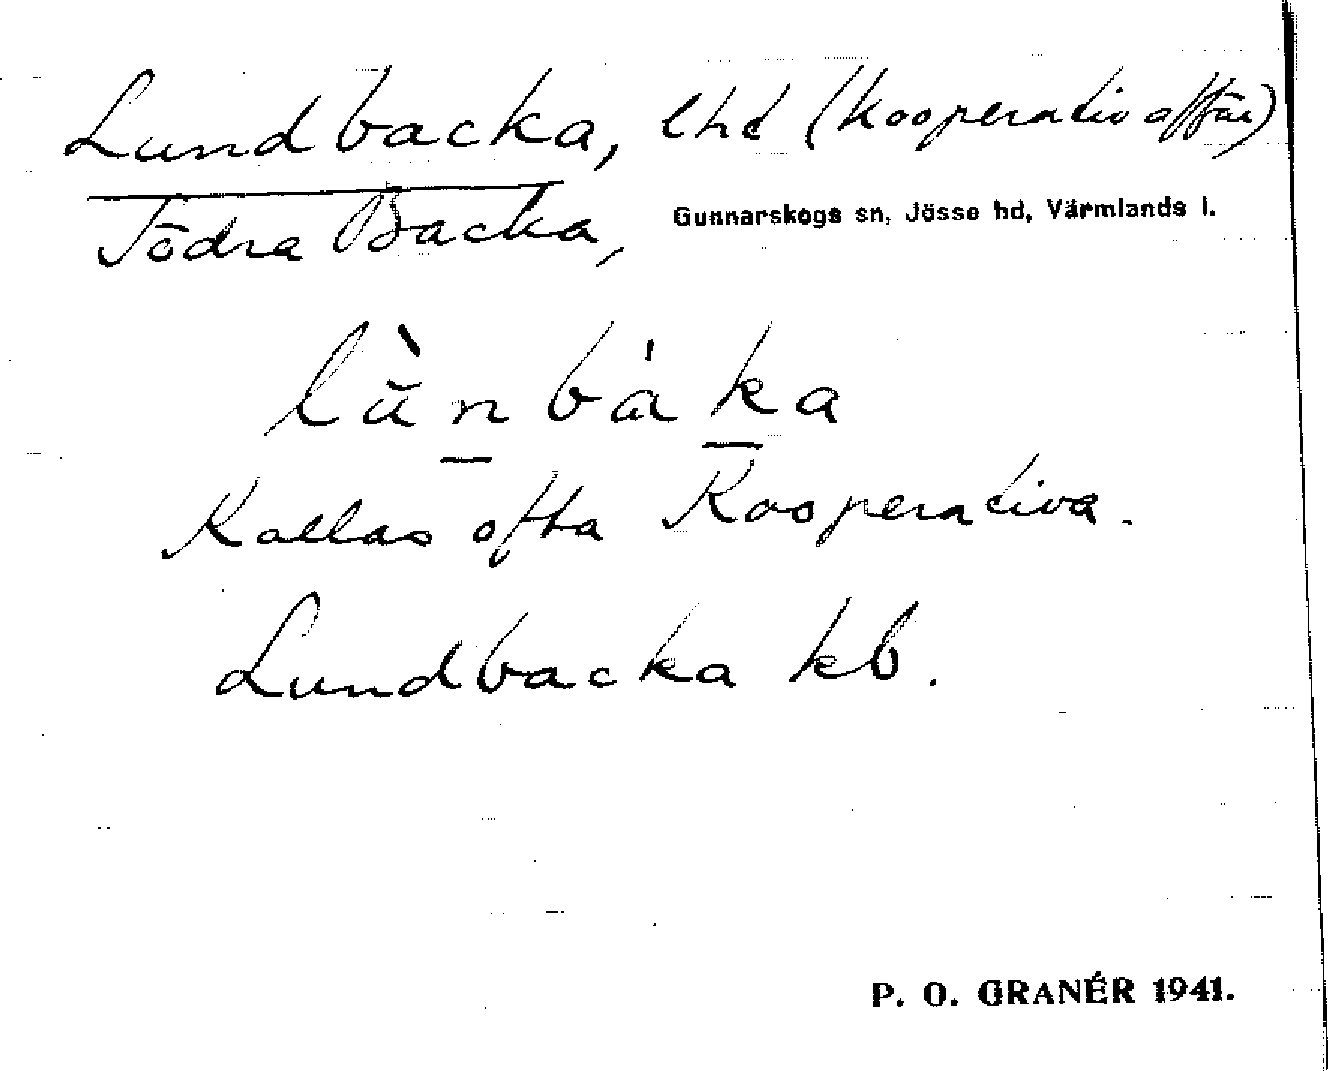 Lundbacka, lhd (Kooperativ affär)
Södra Backa,
Gunnarskogs sn, Jösse hd, Värmlands l.
lǜnbáka
Kallas ofta Kooperativa.
Lundbacka kb.
P. O. GRANÉR 1941.